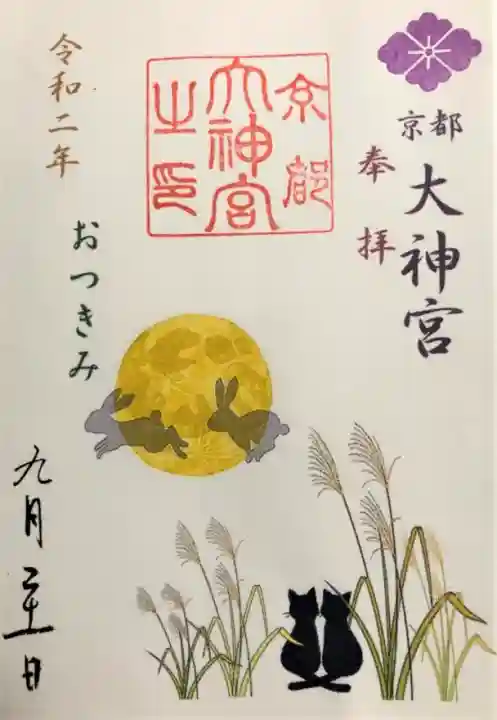 京都
大神宮
奉拝
京都
大神宮
之印
令和二年
おつきみ
九月二十一日